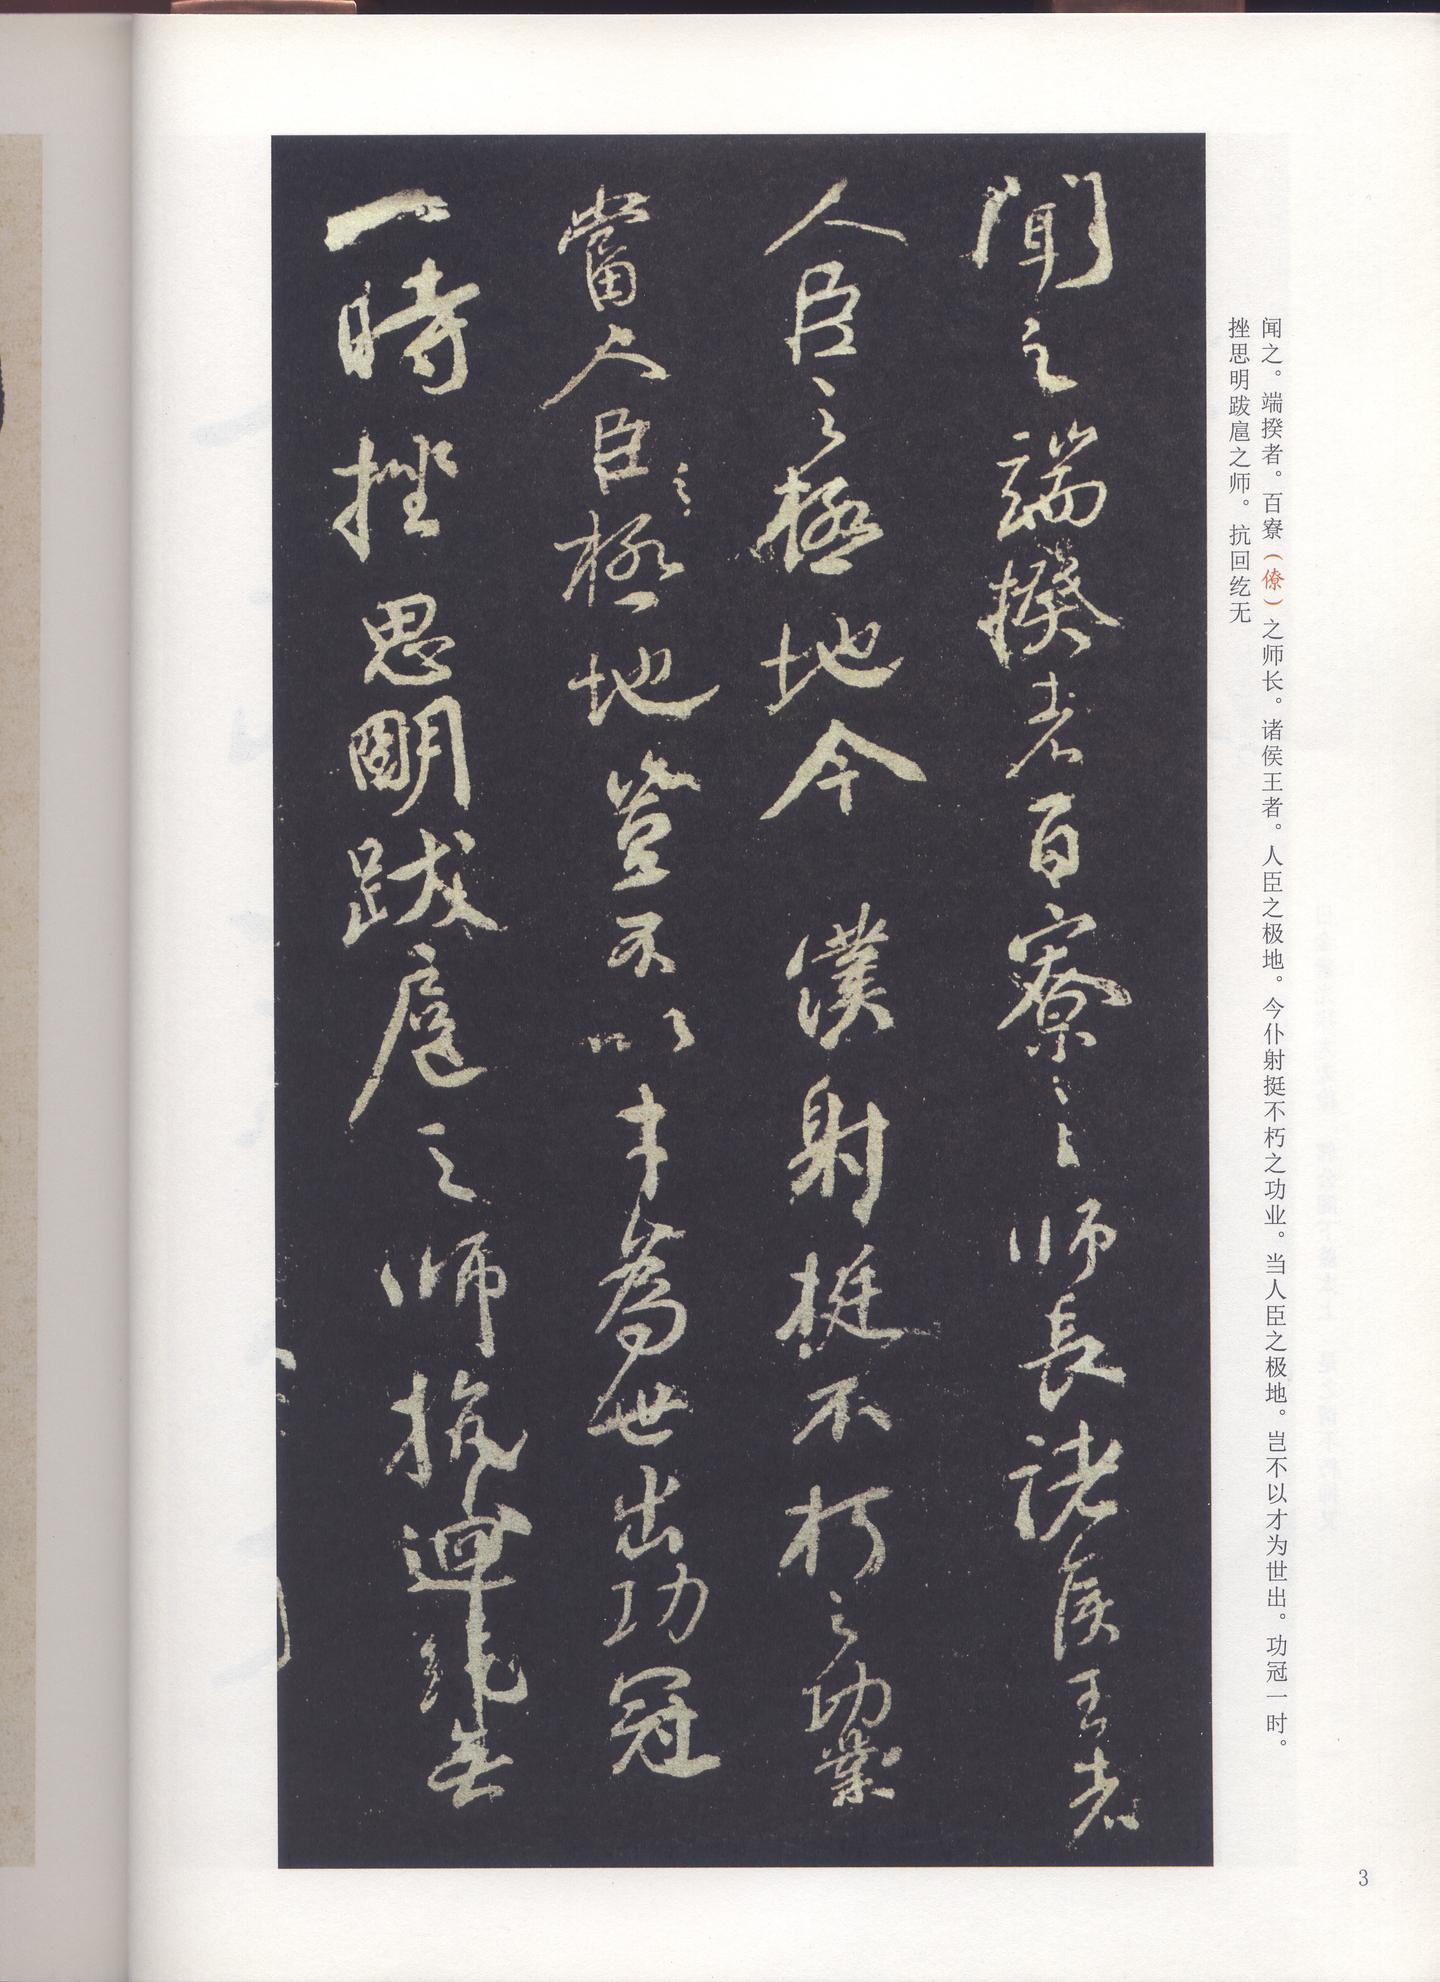 闻之。端揆者。百寮（僚）之师长。诸侯王者。人臣之极地。今仆射挺不朽之功业。当人臣之极地。岂不以才为世出。功冠一时。
挫思明跋扈之师。抗回纥无
聞之端揆者百寮之師長諸侯王者
人臣之極地今僕射挺不朽之功業
當人臣之極地豈不以才為世出功冠
一時挫思明跋扈之師抗迴紇無
3